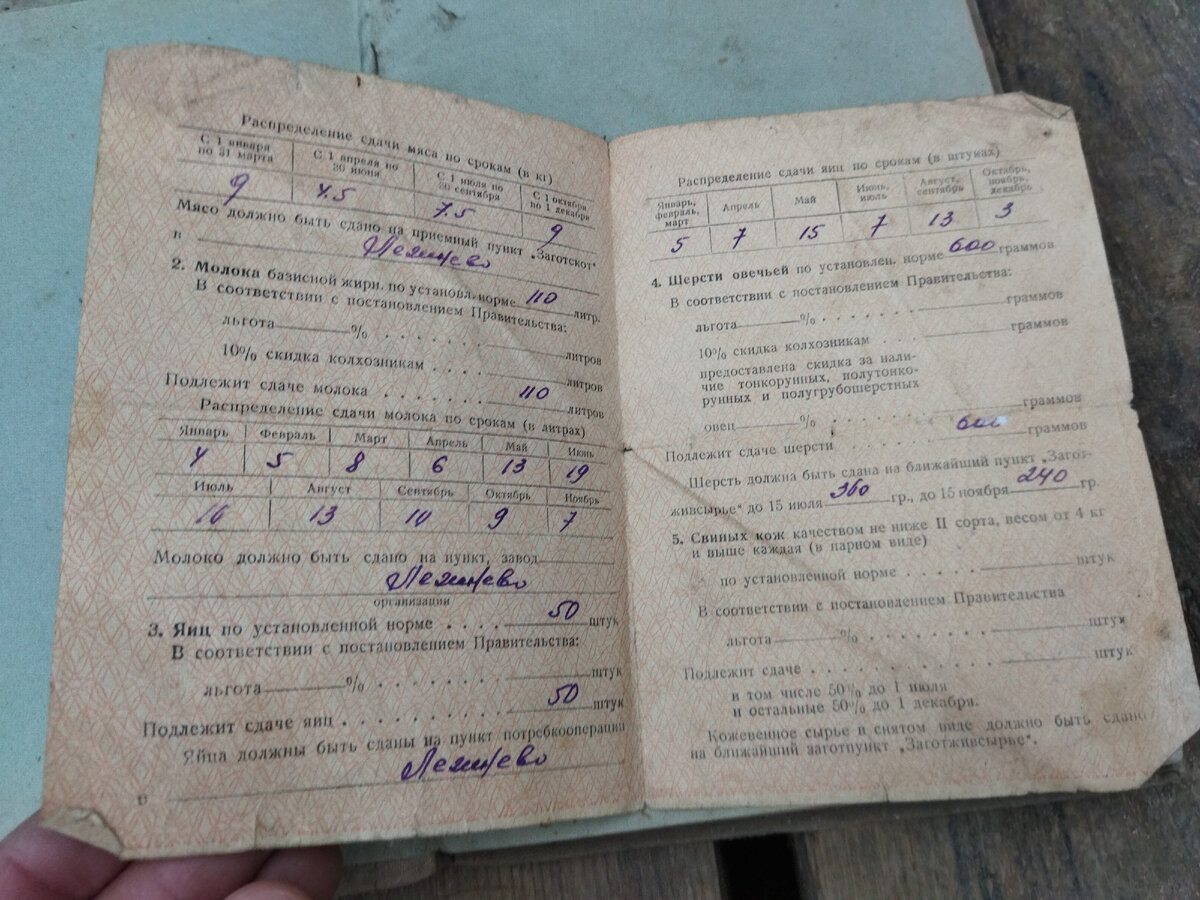 Распределение сдачи мяса по срокам (в кг)
С 1 января по 31 марта
С 1 апреля по 30 июня
С 1 июля по 30 сентября
С 1 октября по 1 декабря
9 4.5 7.5 9
Мясо должно быть сдано на приемный пункт „Заготскот“
в
2. Молока базисной жирн. по установл. норме 110 литр.
В соответствии с постановлением Правительства:
льгота % литров
10% скидка колхозникам литров
Подлежит сдаче молока 110 литров
Распределение сдачи молока по срокам (в литрах)
Январь Февраль Март Апрель Май Июнь
4 5 8 6 13 19
Июль Август Сентябрь Октябрь Ноябрь
16 13 10 9 7
Молоко должно быть сдано на пункт, завод
организации
3. Яиц по установленной норме . . . . 50 штук
В соответствии с постановлением Правительства:
льгота % . . . . . . . штук
Подлежит сдаче яиц . . . . . . . . . . 50 штук
Яйца должны быть сданы на пункт потребкооперации
в
Распределение сдачи яиц по срокам (в штуках)
Январь, февраль, март
Апрель
Май
Июнь, июль
Август, сентябрь
Октябрь, ноябрь, декабрь
5 7 15 7 13 3
4. Шерсти овечьей по установлен. норме 600 граммов
В соответствии с постановлением Правительства:
льгота % граммов
10% скидка колхозникам граммов
предоставлена скидка за нали-
чие тонкорунных, полутонко-
рунных и полугрубошерстных
овец % граммов
Подлежит сдаче шерсти 600 граммов
Шерсть должна быть сдана на ближайший пункт „Загот-
живсырье“ до 15 июля 360 гр., до 15 ноября 240 гр.
5. Свиных кож качеством не ниже II сорта, весом от 4 кг
и выше каждая (в парном виде)
по установленной норме . . . . штук
В соответствии с постановлением Правительства
льгота % штук
Подлежит сдаче штук
в том числе 50% до 1 июля
и остальные 50% до 1 декабря.
Кожевенное сырье в снятом виде должно быть сдано
на ближайший заготпункт „Заготживсырье“.